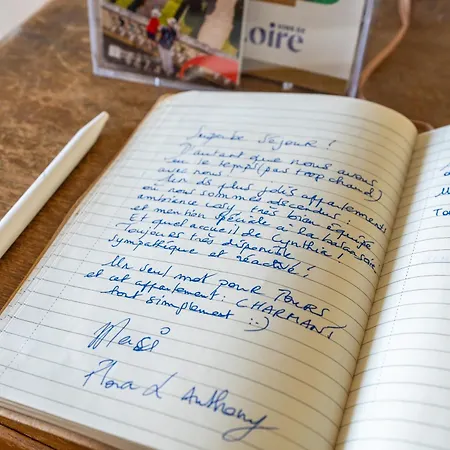 Loire
Superbe séjour !
D'autant que nous avons
eu le temps (pas trop chaud)
avec nous !
Un des plus jolis appartements
où nous sommes descendus :
ambiance cosy, très bien équipé
et mention spéciale à la balançoire
Et quel accueil de Cynthia !
Toujours très disponible,
sympathique et réactive !
Un seul mot pour TOURS
et cet appartement : CHARMANT
tout simplement :)
Merci
Flora & Anthony